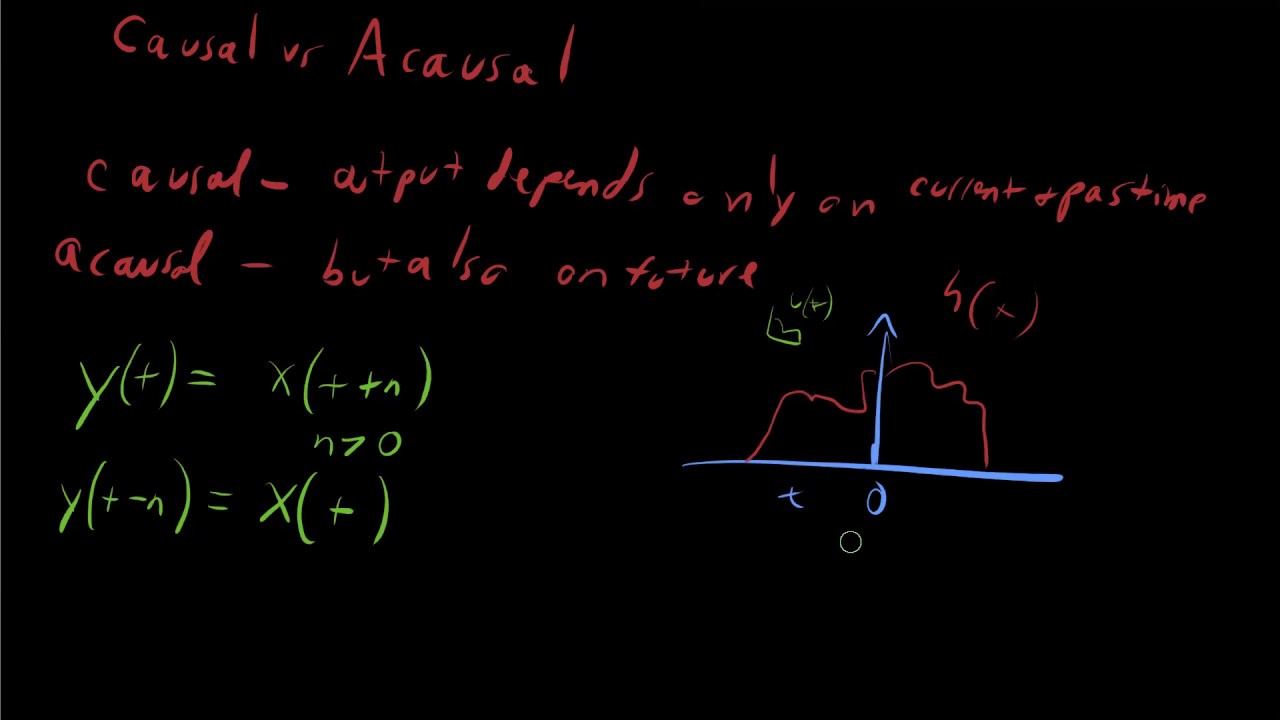 Causal vs Acausal
causal - output depends only on current + past time
acausal - but also on future
u(t)
h(t)
y(t) = x(t+n)
n>0
y(t-n) = x(t)
t 0